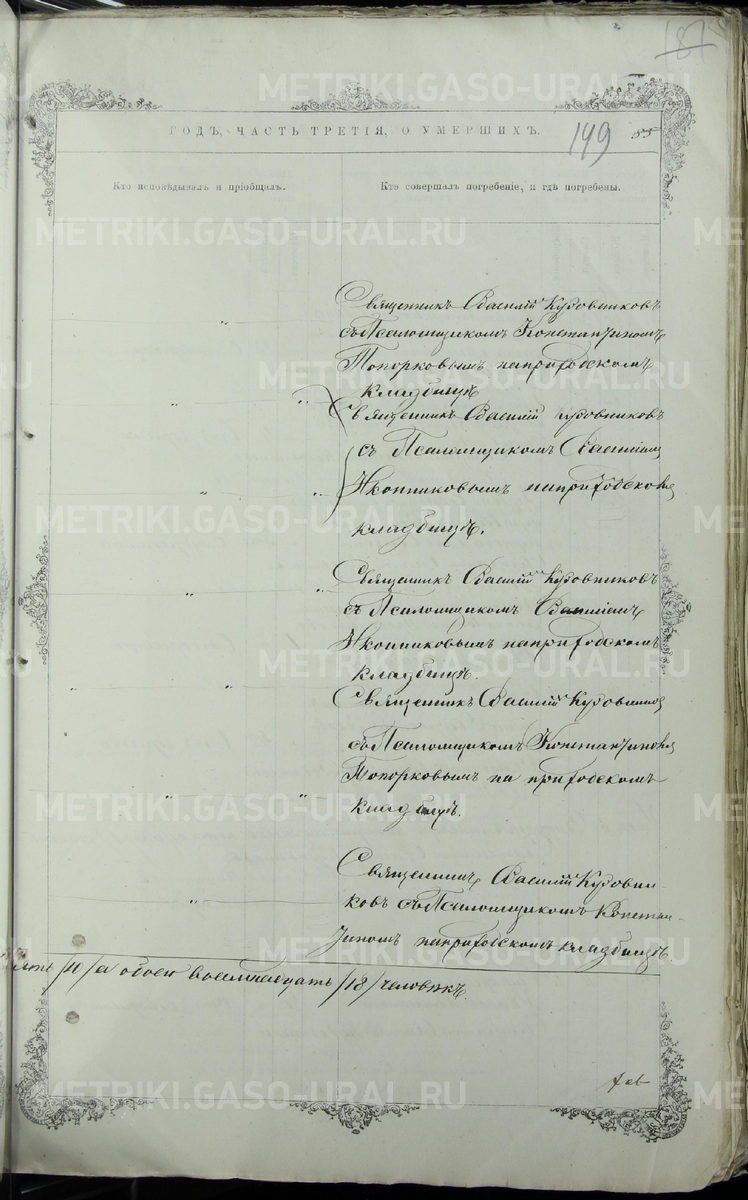 187
ГОДЪ, ЧАСТЬ ТРЕТІЯ, О УМЕРШИХЪ.
149
55
Кто исповѣдывалъ и пріобщалъ.
Кто совершалъ погребеніе, и гдѣ погребены.
Священникъ Василій Кудовников
съ Псаломщикомъ Константиномъ
Топорковымъ на приходскомъ
кладбищѣ
Священникъ Василій Кудовниковъ
съ Псаломщикомъ Василіемъ
Иконниковымъ на приходском
кладбищѣ.
Священникъ Василій Кудовниковъ
съ Псаломщикомъ Василіемъ
Иконниковымъ на приходскомъ
кладбищѣ.
Священникъ Василій
съ Псаломщикомъ Константином
Топорковымъ на приходскомъ
кладбищѣ.
Священник Василій Кудовни-
ковъ съ Псаломщикомъ Констан-
тиномъ на приходскомъ кладбищѣ
/10/ а обоего восемнадцать /18/ человѣкъ.
METRIKI.GASO-URAL.RU